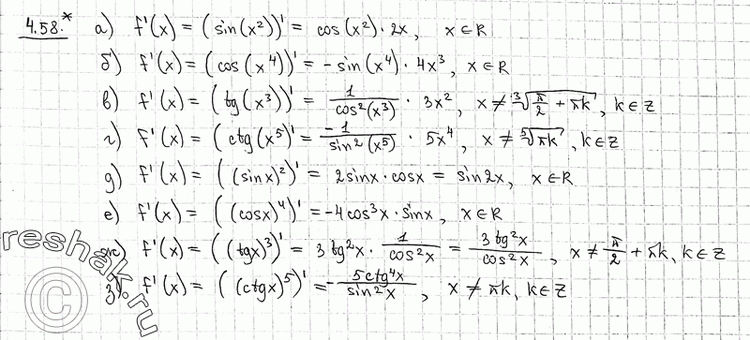 4.58.* а) f'(x) = (sin(x²))' = cos(x²)·2x, x∈R
б) f'(x) = (cos(x⁴))' = -sin(x⁴)·4x³, x∈R
в) f'(x) = (tg(x³))' = 1/cos²(x³) · 3x², x≠∛(π/2 + πk), k∈Z
г) f'(x) = (ctg(x⁵)' = -1/sin²(x⁵) · 5x⁴, x≠⁵√(πk), k∈Z
д) f'(x) = ((sinx)²)' = 2sinx·cosx = sin2x, x∈R
е) f'(x) = ((cosx)⁴)' = -4cos³x·sinx, x∈R
ж) f'(x) = ((tgx)³)' = 3tg²x · 1/cos²x = 3tg²x/cos²x, x≠π/2 + πk, k∈Z
з) f'(x) = ((ctgx)⁵)' = -5ctg⁴x/sin²x, x≠πk, k∈Z
reshak.ru
©